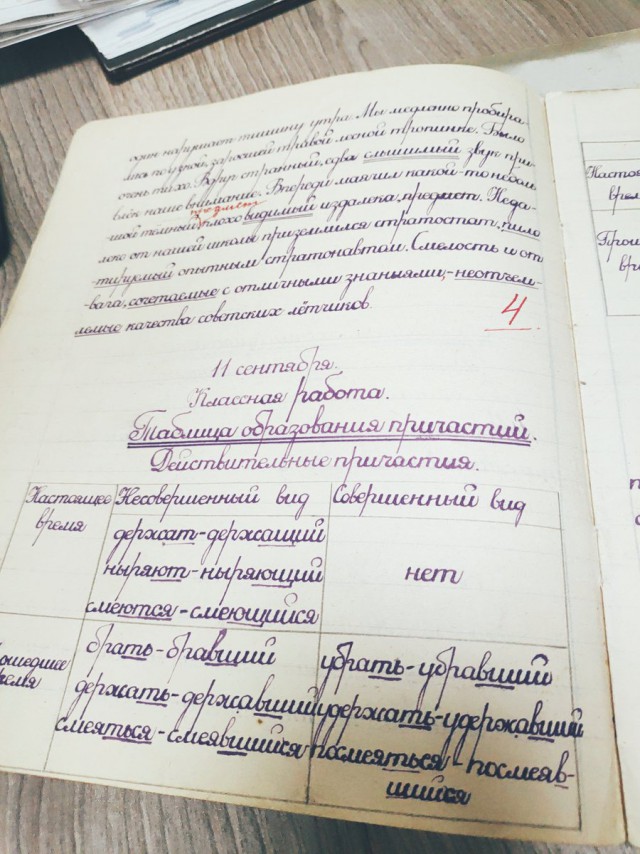 один нарушает тишину утра Мы медленно пробира-
лись по узкой, заросшей травой лесной тропинке. Было
очень тихо. Вдруг странный, едва слышимый звук при-
влёк наше внимание. Впереди маячил какой-то неболь
предмет
шой тёмный, плохо видимый издалека, предмет. Неда-
леко от нашей школы приземлился стратостат, пило
тируемый опытным стратонавтом. Смелость и от
вага, сочетаемые с отличными знаниями,-неотъем-
лемые качества советских лётчиков.
4
11 сентября.
Классная работа.
Таблица образования причастий.
Действительные причастия.
Настоящее время
Несовершенный вид
Совершенный вид
держат-держащий
ныряют-ныряющий
смеются-смеющийся
нет
ошедшее
ремя
брать-бравший
держать-державший
смеяться-смеявшийся
убрать-убравший
удержать-удержавший
посмеяться-посмеяв-
шийся
Настоя
врем
Прош
вре